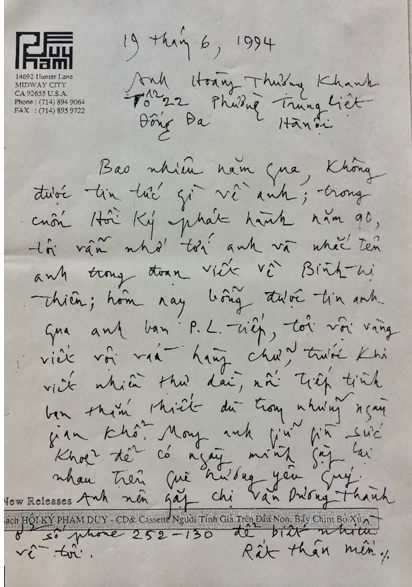 PHẠM DUY
14692 Hunter Lane
MIDWAY CITY
CA 92655 U.S.A.
Phone : (714) 894 9064
FAX : (714) 895 9722
19 tháng 6, 1994
Anh Hoàng Thương Khanh
Tổ 22 Phường Trung Liệt
Đống Đa Hànội
Bao nhiêu năm qua, không
được tin tức gì về anh; trong
cuốn Hồi Ký phát hành năm 90,
tôi vẫn nhớ tới anh và nhắc tên
anh trong đoạn viết về Bình-Trị
Thiên; hôm nay bỗng được tin anh
qua anh bạn P.L. Tiếp, tôi vội vàng
viết vội vài hàng chữ, trước khi
viết nhiều thư dài, nối tiếp tình
bạn thắm thiết dù trong những ngày
gian khổ. Mong anh giữ gìn sức
khoẻ để có ngày mình gặp lại
nhau trên quê hương yêu quý.
New Releases
Anh nên gặp chị Văn Dương Thành
ách HỒI KÝ PHẠM DUY - CD& Cassette Người Tình Già Trên Đầu Non, Bầy Chim Bỏ Xứ
ở số phone 252-130 để biết nhiều
về tôi. Rất thân mến